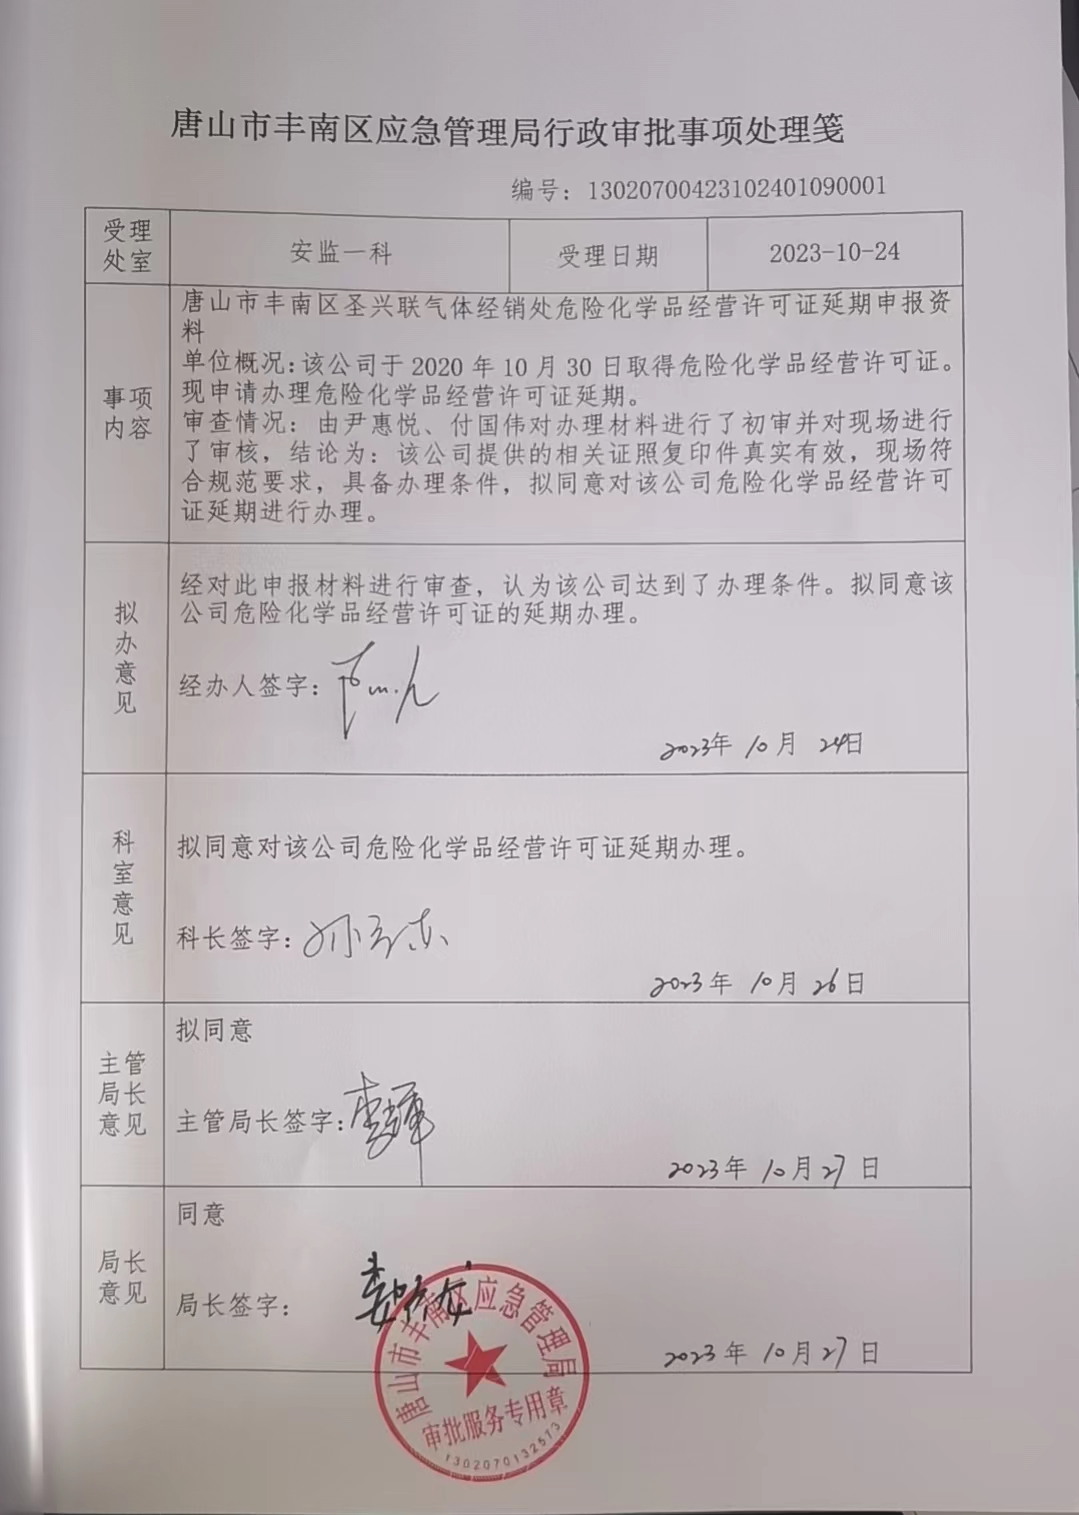 唐山市丰南区应急管理局行政审批事项处理笺
编号：13020700423102401090001
受理
处室
安监一科
受理日期
2023-10-24
事项
内容
唐山市丰南区圣兴联气体经销处危险化学品经营许可证延期申报资
料
单位概况：该公司于 2020 年 10 月 30 日取得危险化学品经营许可证。
现申请办理危险化学品经营许可证延期。
审查情况：由尹惠悦、付国伟对办理材料进行了初审并对现场进行
了审核，结论为：该公司提供的相关证照复印件真实有效，现场符
合规范要求，具备办理条件，拟同意对该公司危险化学品经营许可
证延期进行办理。
拟
办
意
见
经对此申报材料进行审查，认为该公司达到了办理条件。拟同意该
公司危险化学品经营许可证的延期办理。
经办人签字：
2023年 10月 24日
科
室
意
见
拟同意对该公司危险化学品经营许可证延期办理。
科长签字：
2023年 10月 26日
主管
局长
意见
拟同意
主管局长签字：
2023年 10月 27日
局长
意见
同意
局长签字：
2023年 10月 27日
唐山市丰南区应急管理局
审批服务专用章
1302070132573